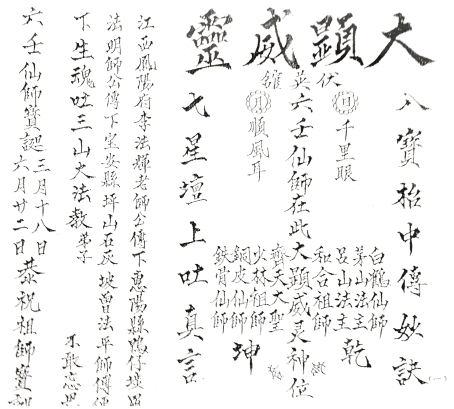 大顯威靈
八寶抬中傳妙訣
(一)
白鶴仙師
茅山法主
呂山法主
和合祖師
乾
日千里眼
伏英館
六壬仙師在此大顯威灵神位
月順風耳
齊天大聖
火林祖師
銅皮仙師
鉄骨仙師
坤
七星壇上吐真言
江西鳳陽府李法輝老師公傳下惠陽縣鴨仔
法明師公傳下宝安縣坪山石灰坡曾法平師傅傳
下生魂吐三山大法教弟子
不敢忘
六壬仙師寶誕三月十八日
六月廿二日
恭祝祖師寶